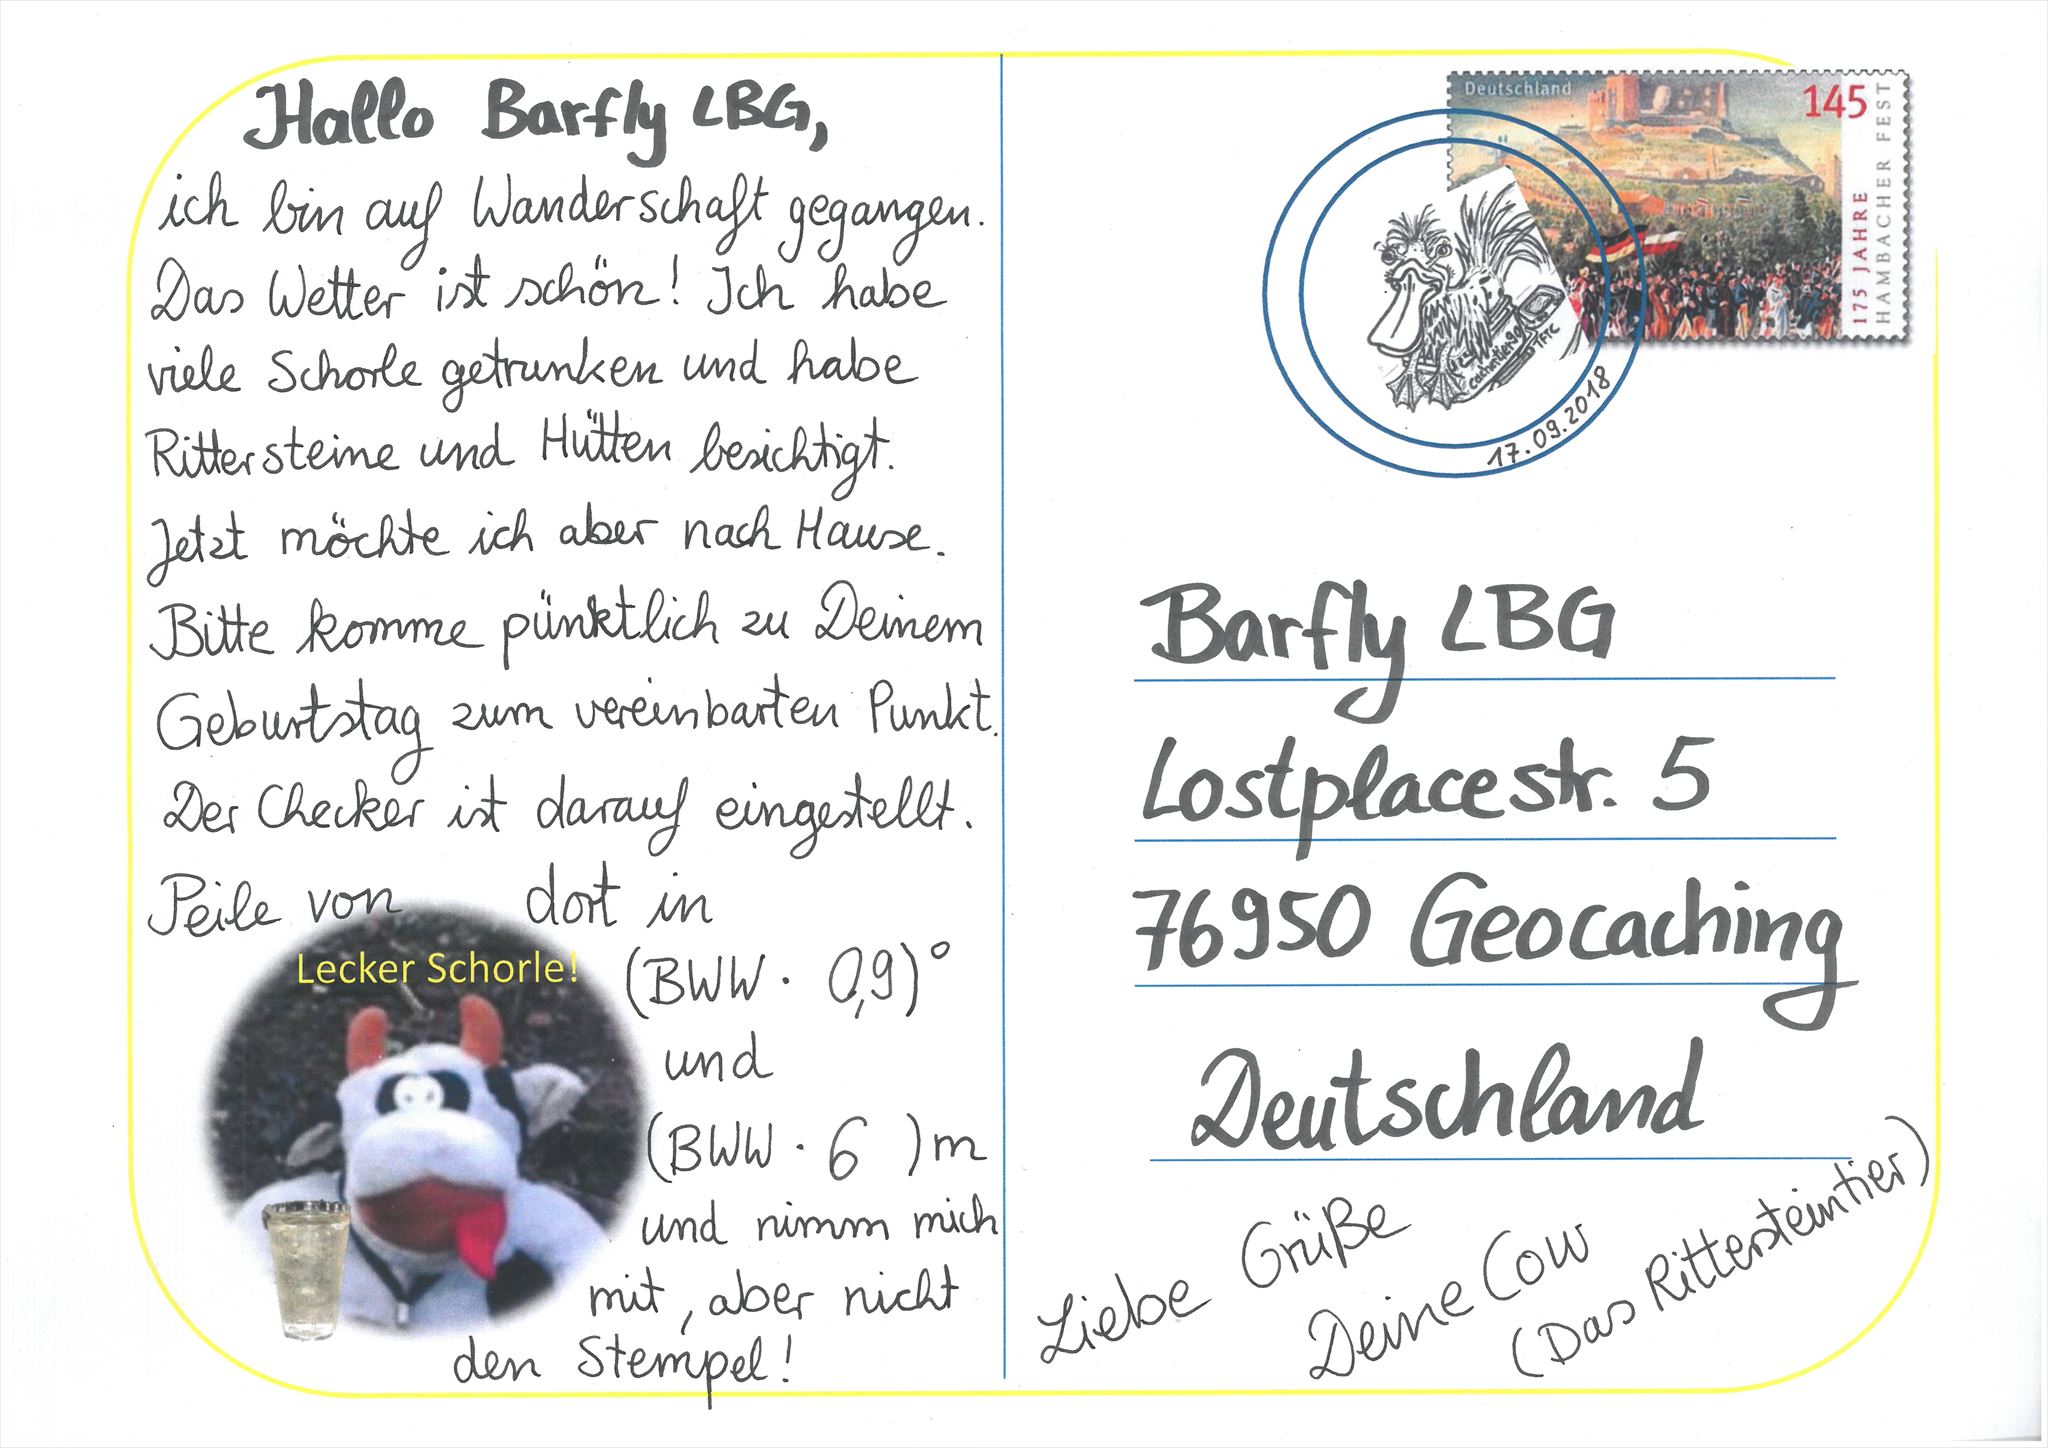 Hallo Barfly LBG,
ich bin auf Wanderschaft gegangen.
Das Wetter ist schön! Ich habe
viele Schorle getrunken und habe
Rittersteine und Hütten besichtigt.
Jetzt möchte ich aber nach Hause.
Bitte komme pünktlich zu Deinem
Geburtstag zum vereinbarten Punkt.
Der Checker ist darauf eingestellt.
Peile von dort in
Lecker Schorle!
(BWW · 0,9)°
und
(BWW · 6 )m
und nimm mich
mit, aber nicht
den Stempel!
Deutschland
145
175 JAHRE
HAMBACHER FEST
TFTC
17.09.2018
Barfly LBG
Lostplacestr. 5
76950 Geocaching
Deutschland
Liebe Grüße
Deine Cow
(Das Rittersteintier)